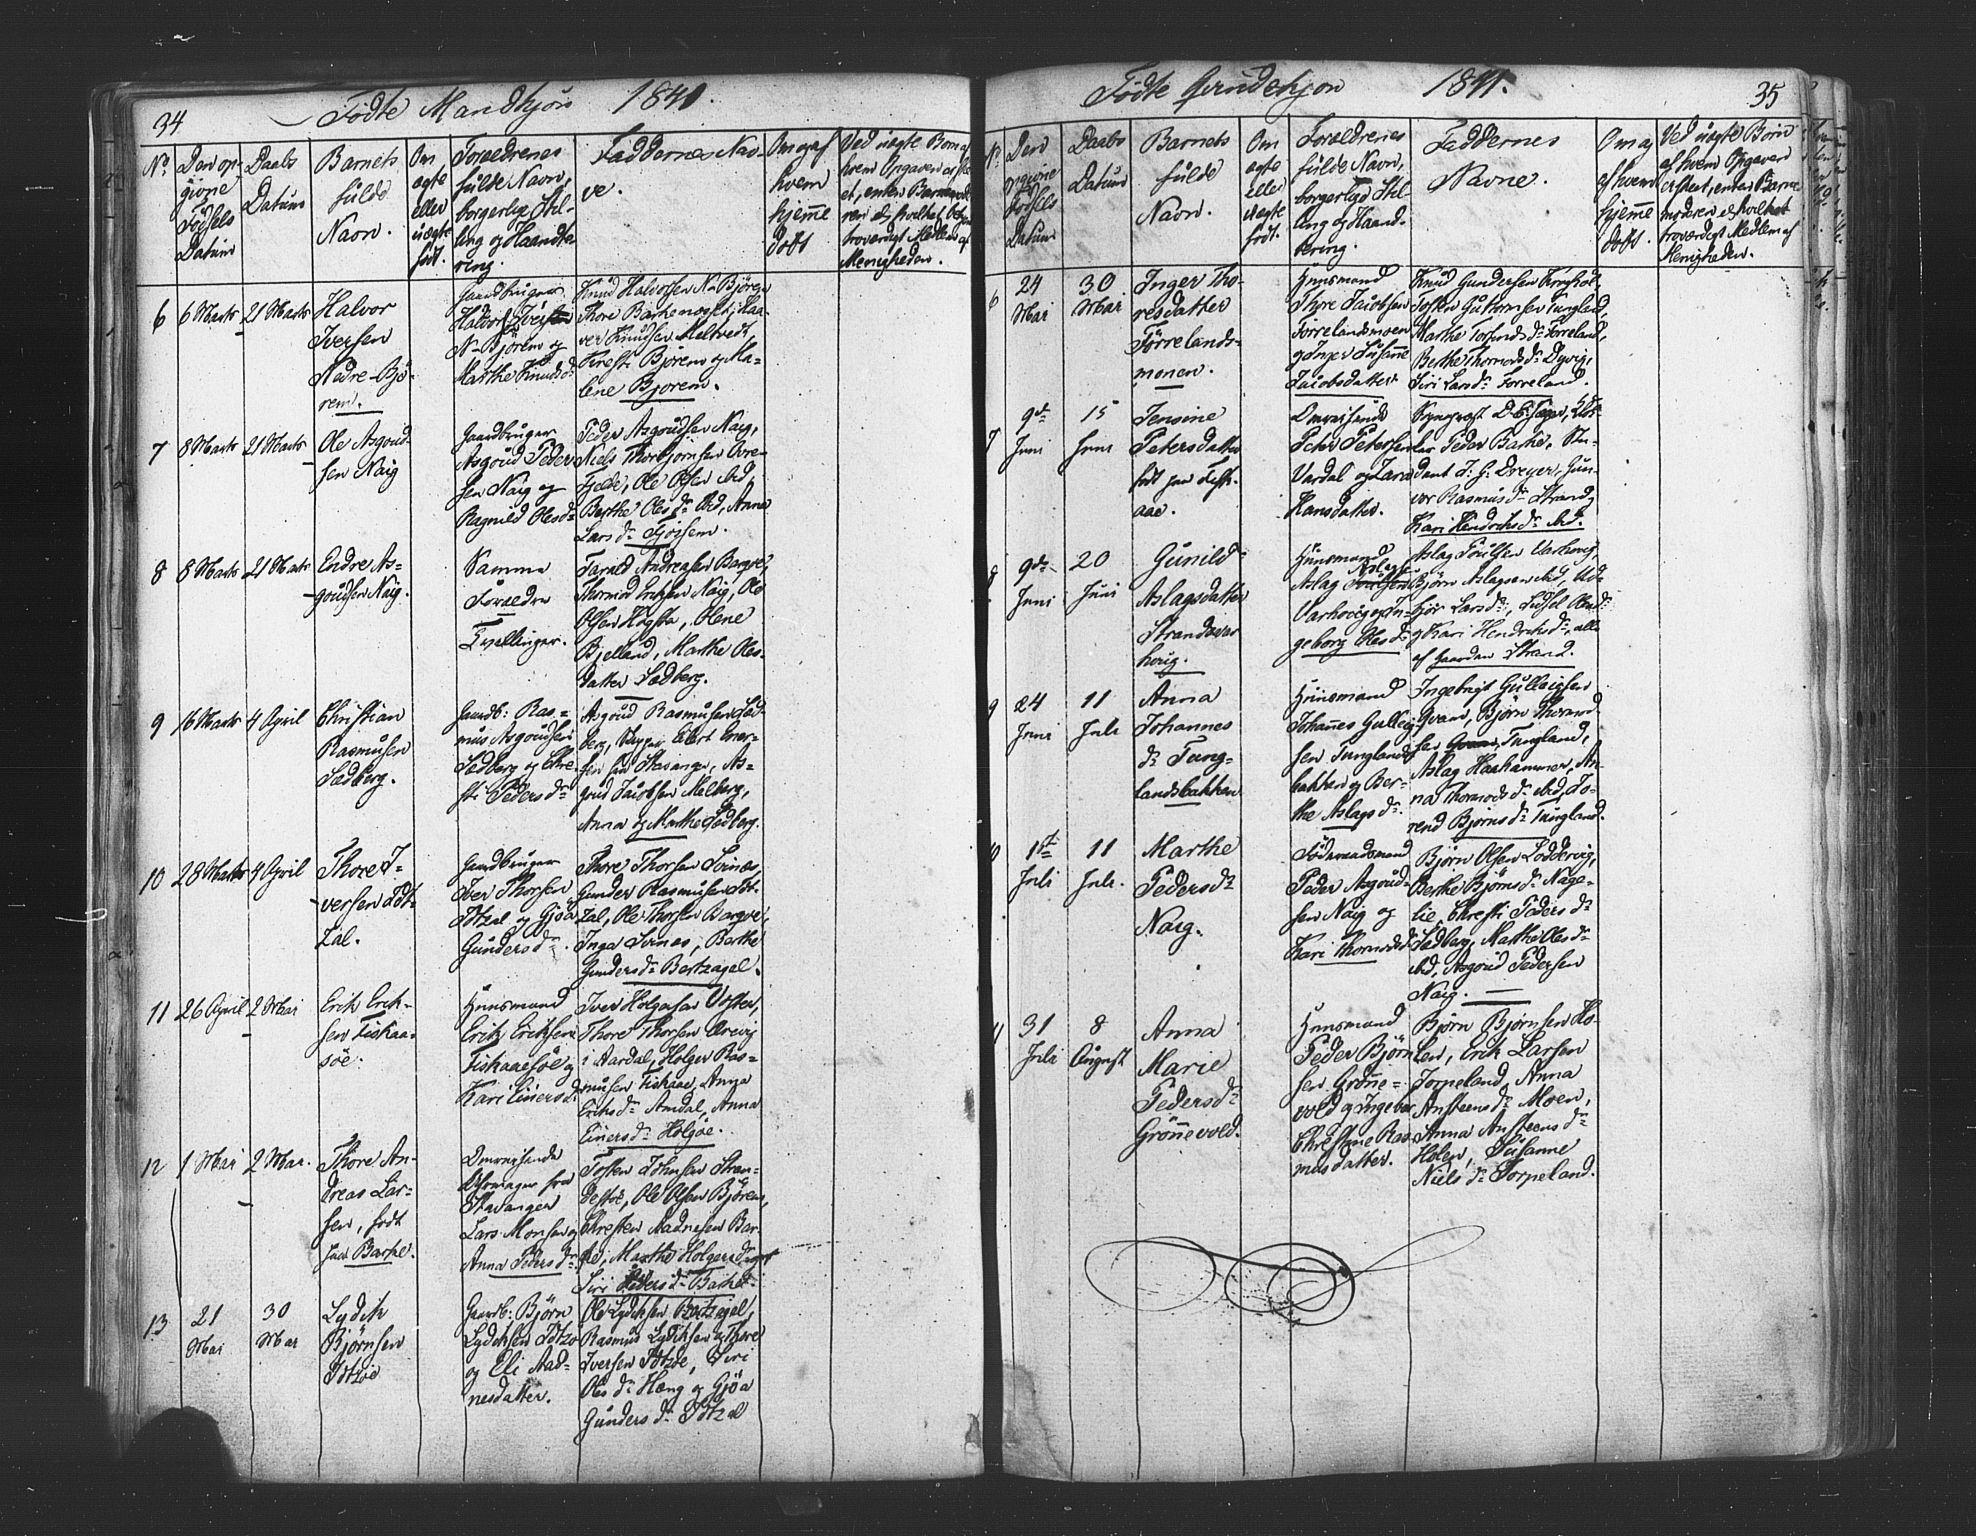 34
Fødte Mandkjøn 1841.
No
Den op-
givne
Fødsels
Datum
Daabs
Datum
Barnets
fulde
Navn.
Om
ægte
eller
uægte
født.
Forældrenes
fulde Navn,
borgerlige Stil-
ling og Haandte
ring.
Faddernes Nav-
ve.
Om og af
hvem
hjemme
døbt
Ved uægte Børn af
hvem Opgaven er ske
et, enten Barnemode
ren el. hvilket
troværdigt Medlem af
Menigheden.
6
6 Marts
21 Marts
Halvor
Iversen
Nedre-Bjø-
rem.
Gaardbruger
Halvor Iversen
N-Bjørem og
Marthe Knudsdr
Knud Halvorsen N-Bjørem
Thore Barkenæset, Haa-
ver Knudsen Meltvedt
Kirsti Bjørem og Ma-
lene Bjorem.
7
8 Marts
21 Marts
Ole Asgoud-
sen Naig
Gaardbruger
Asgoud Peder
sen Naig og
Ragnild Olesdr
Peder Asgoudsen Naig,
Niels Thorbjørnsen Øvre-
Fjelde, Ole Olsen ibid,
Berthe Olesdr ibid, Anna
Larsdr Tjøssem.
8
8 Marts
21 Marts
Endre As-
goudsen Naig.
Samme
Forældre
Tvillinger.
Tarald Andreasen Bergve,
Thormod Endresen Naig, Ole
Olsen Høgsta, Olene
Bjelland, Marthe Oles-
datter Sedberg.
9
16 Marts
4 April
Christian
Rasmusen
Sedberg.
Gaardb: Ras-
mus Asgoudsen
Sedberg og Chre-
sti Pedersdr
Asgoud Rasmusen Sed-
berg, Eilert Iver-
sen fra Stavanger, As-
goud Jacobsen Melberg,
Anna og Marthe Sedberg.
10
28 Marts
4 April
Thore I-
versen Idt-
zal.
Gaardbruger
Iver Thorsen
Idtzal og Gjøa
Gundersdr
Thore Thorsen Svines,
Gunder Rasmusen Idt-
zal, Ole Thorsen Bergve,
Inga Svines, Berthe
Gundersdr Bertzagel.
11
26 April
2 Mai
Erik Erik-
sen Fiskaa-
søe.
Huusmand
Erik Eriksen
Fiskaaesøe og
Kari Einersdr
Iver Holgersen Voster,
Thore Thorsen Ørevig
i Aardal, Holger Ras-
musen Fiskaae, Anna
Eriksdr Amdal, Anna
Einersdr Holsøe.
12
1 Mai
2 Mai.
Thore An-
dreas Lar-
sen, født
paa Barke.
Omreisende
fra
Stavanger
Lars Monsen og
Anna Pedersdr
Tosten Johnsen Stran-
destøe, Ole Olsen Bjørem,
Christen Aadnesen Bar-
ke, Marthe Holgersdr og
Siri Pedersdr Barke.
13
21
Mai
30
Mai
Lydik
Bjørnsen
Idtsøe
Gaardb: Bjørn
Lydiksen Idtzø
og Eli Aad-
nesdatter.
Ole Lydiksen Bertzagel,
Rasmus Lydiksen og Thore
Iversen Idtzøe, Siri
Olesdr Hæng og Gjøa
Gundersdr Idtzal
Fødte Qvindekjøn 1841.
35
No
Den
opgivne
Fødsels
Datum
Daabs
Datum
Barnets
fulde
Navn.
Om
ægte
eller
uægte
født.
Forældrenes
fulde Navn,
borgerlige Stil-
ling og Haand-
tering.
Faddernes
Navne.
Om og
af hvem
hjemme
døbt.
Ved uægte Børn
af hvem Opgaven
er skeet, enten Barne
moderen el. hvilket
troværdigt Medlem af
Menigheden.
6
24
Mai
30
Mai
Inger Tho-
resdatter
Førrelands-
monen.
Huusmand
Thore Jacobsen
Forrelandsmoen
og Inger Susanne
Jacobsdatter
Knud Gundersen
Tosten Guttormsen Tungland,
Marthe Torfindsdr Førreland,
Berthe Thormodsdr Dyvig,
Siri Larsdr Forreland.
7
9de
Juni
15
Juni
Jensine
Petersdatter
født paa Fisk-
aae.
Omreisende
Peter Petersen
Vardal og Sara
Hansdatter.
Peder Barke, Stu-
dent J. G. Dreyer, Gun-
vor Rasmusdr Strand,
Kari Hendriksdr ibid.
8
9de
Juni
20
Juni
Gunild
Aslagsdatter
Strandevar
houg.
Huusmand
Aslag Aslags
Varhoug og In-
geborg Olesdr
Aslag Varhoug,
Bjørn Aslagsen ibid, Ud-
Larsdr, Sidsel Olesdr
og Kari Hendriksdr, alle
af Gaarden Strand.
9
24
Juni
11
Juli
Anna
Johannes
dr Tung-
landsbakken
Huusmand
Johannes Gulleig
sen Tunglands
bakken og Ber-
the Aslagsdr
Ingebrigt Gulleigsen
Qvam, Bjørn Thormod
sen Tungland,
Aslag Haahammer, An-
na Thormodsdr ibid, To-
rend Bjørnsdr Tungland.
10
1ste
Juli
11
Juli.
Marthe
Pedersdr
Naig.
Føderaadsmand
Peder Asgoud-
sen Naig og
Kari Thormodsdr
Bjørn Olsen Loddervig,
Berthe Bjørnsdr Nage-
lie, Chresti Pedersdr
Sedberg, Marthe Olesdr
ibid, Asgoud Pedersen
Naig.
11
31
Juli
8
August
Anna
Marie
Pedersdr
Grønnevold.
Huusmand
Peder Bjørn
sen Grønne-
vold og Ingebor
Chrestine Ras-
musdatter.
Bjørn Bjørnsen Ho-
len, Erik Larsen
Torpeland, Anna
Ansteensdr Moen,
Anna Ansteensdr
Holen, Susanne
Nielsdr Torpeland.